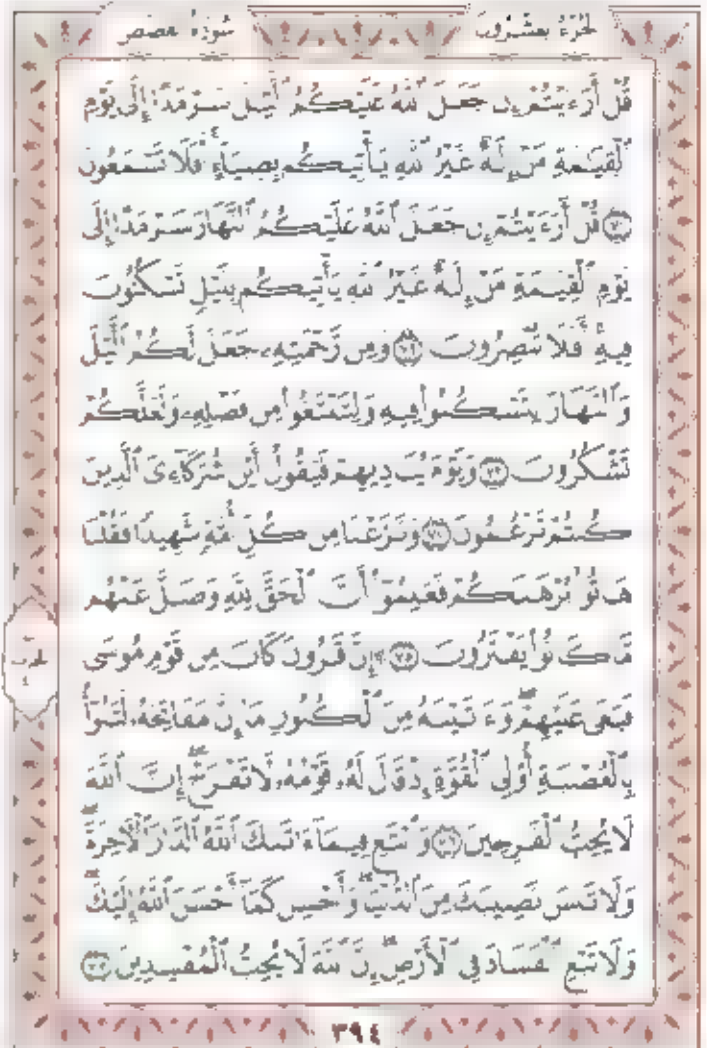 الجزء العشرون سورة القصص
قُلْ أَرَءَيْتُمْ إِن جَعَلَ ٱللَّهُ عَلَيْكُمُ ٱلَّيْلَ سَرْمَدًا إِلَىٰ يَوْمِ
ٱلْقِيَٰمَةِ مَنْ إِلَٰهٌ غَيْرُ ٱللَّهِ يَأْتِيكُم بِضِيَآءٍ ۖ أَفَلَا تَسْمَعُونَ
٧١ قُلْ أَرَءَيْتُمْ إِن جَعَلَ ٱللَّهُ عَلَيْكُمُ ٱلنَّهَارَ سَرْمَدًا إِلَىٰ
يَوْمِ ٱلْقِيَٰمَةِ مَنْ إِلَٰهٌ غَيْرُ ٱللَّهِ يَأْتِيكُم بِلَيْلٍ تَسْكُنُونَ
فِيهِ ۖ أَفَلَا تُبْصِرُونَ ٧٢ وَمِن رَّحْمَتِهِۦ جَعَلَ لَكُمُ ٱلَّيْلَ
وَٱلنَّهَارَ لِتَسْكُنُوا۟ فِيهِ وَلِتَبْتَغُوا۟ مِن فَضْلِهِۦ وَلَعَلَّكُمْ
تَشْكُرُونَ ٧٣ وَيَوْمَ يُنَادِيهِمْ فَيَقُولُ أَيْنَ شُرَكَآءِىَ ٱلَّذِينَ
كُنتُمْ تَزْعُمُونَ ٧٤ وَنَزَعْنَا مِن كُلِّ أُمَّةٍ شَهِيدًا فَقُلْنَا
هَاتُوا۟ بُرْهَٰنَكُمْ فَعَلِمُوٓا۟ أَنَّ ٱلْحَقَّ لِلَّهِ وَضَلَّ عَنْهُم
مَّا كَانُوا۟ يَفْتَرُونَ ٧٥ ۞ إِنَّ قَٰرُونَ كَانَ مِن قَوْمِ مُوسَىٰ
فَبَغَىٰ عَلَيْهِمْ ۖ وَءَاتَيْنَٰهُ مِنَ ٱلْكُنُوزِ مَآ إِنَّ مَفَاتِحَهُۥ لَتَنُوٓأُ
بِٱلْعُصْبَةِ أُو۟لِى ٱلْقُوَّةِ إِذْ قَالَ لَهُۥ قَوْمُهُۥ لَا تَفْرَحْ ۖ إِنَّ ٱللَّهَ
لَا يُحِبُّ ٱلْفَرِحِينَ ٧٦ وَٱبْتَغِ فِيمَآ ءَاتَىٰكَ ٱللَّهُ ٱلدَّارَ ٱلْءَاخِرَةَ ۖ
وَلَا تَنسَ نَصِيبَكَ مِنَ ٱلدُّنْيَا ۖ وَأَحْسِن كَمَآ أَحْسَنَ ٱللَّهُ إِلَيْكَ ۖ
وَلَا تَبْغِ ٱلْفَسَادَ فِى ٱلْأَرْضِ ۖ إِنَّ ٱللَّهَ لَا يُحِبُّ ٱلْمُفْسِدِينَ ٧٧
٣٩٤